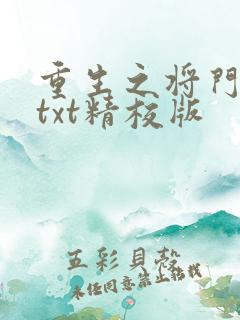 重生之将门
txt精校版
五彩貝殼
未经同意禁止转载